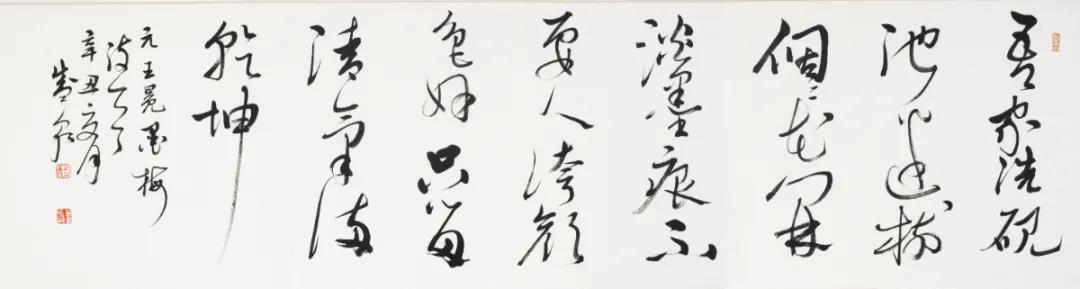 吾家洗硯
池邊樹
個々花開
淡墨痕不
要人誇顏
色好只留
清氣滿
乾坤
元王冕墨梅
詩
辛丑夏月